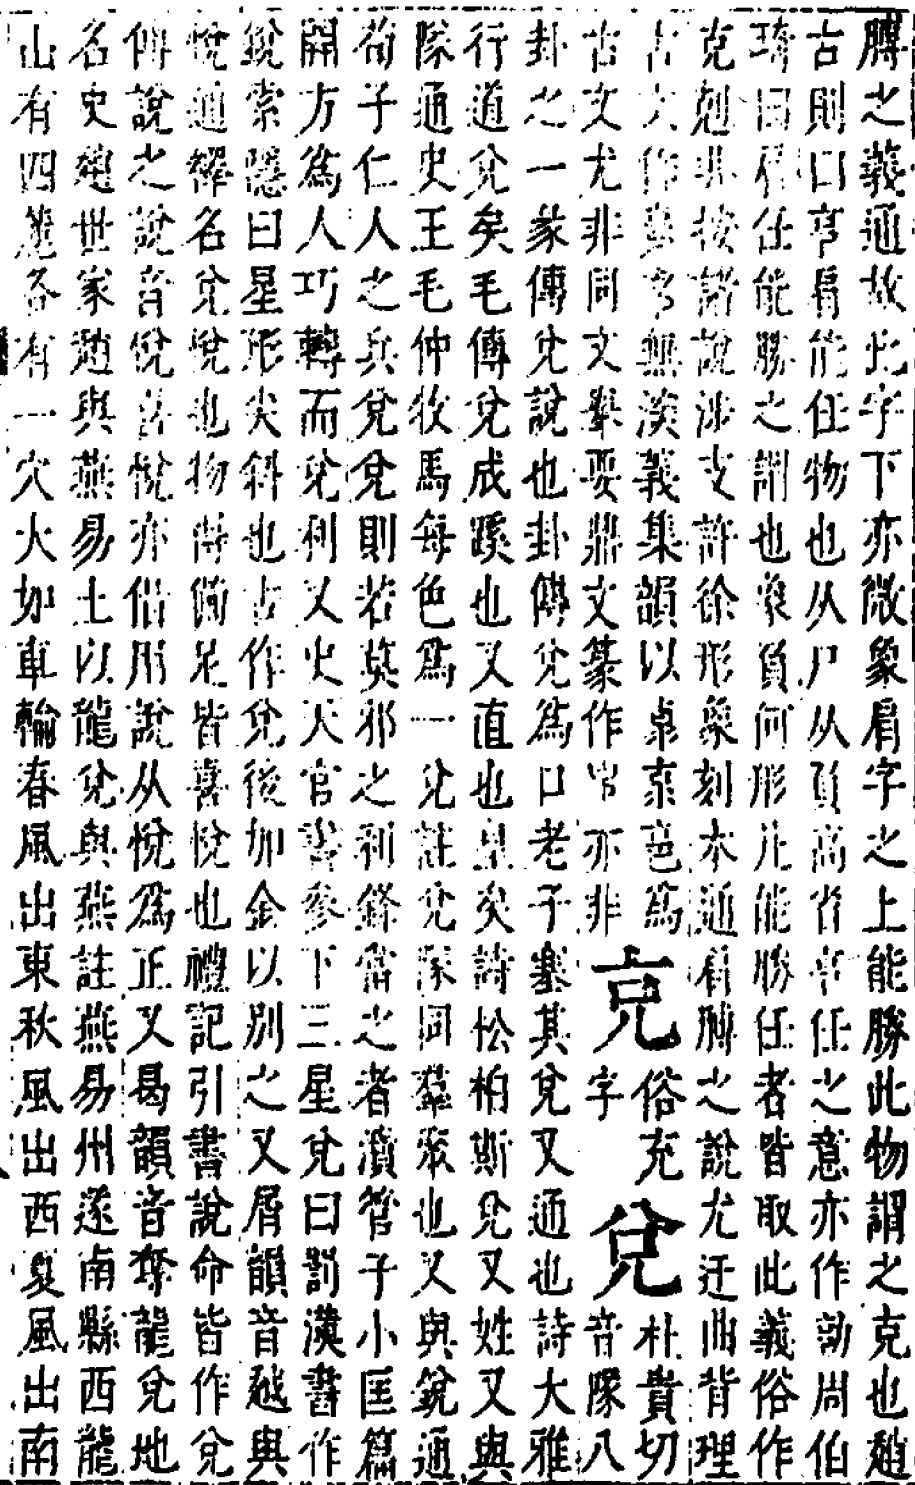 膊之義通故此字下亦微象肩字之上能勝此物謂之克也趙
古則曰亨肩能任物也从尸从頁高省亨任之意亦作勀周伯
琦曰肩任能勝之謂也象負何形凡能勝任者皆取此義俗作
克剋非按諸說涉支許徐形象刻本通肩膊之說尤迂曲背理
古文作𠅏亨無深義集韻以㫐㐭亯為
古文尤非同文舉要鼎文篆作𠧳亦非
𠅏俗充
字
兌朴貴切
音隊八
卦之一彖傳兌說也卦傳兌為口老子塞其兌又通也詩大雅
行道兌矣毛傳兌成蹊也又直也皇矣詩松柏斯兌又姓又與
隊通史王毛仲牧馬每色為一兌註兌隊同羣衆也又與銳通
荀子仁人之兵兌兌則若莫邪之利鋒當之者潰管子小匡篇
開方為人巧轉而兌利又史天官書參下三星兌曰罰漢書作
銳索隱曰星形尖斜也古作兌後加金以別之又屑韻音越與
悅通釋名兌悅也物得備足皆喜悅也禮記引書說命皆作兌
傅說之說音悅喜悅亦借用說从悅為正又曷韻音奪龍兌地
名史趙世家趙與燕易土以龍兌與燕註燕易州遂南縣西龍
山有四麓各有一穴大如車輪春風出東秋風出西夏風出南